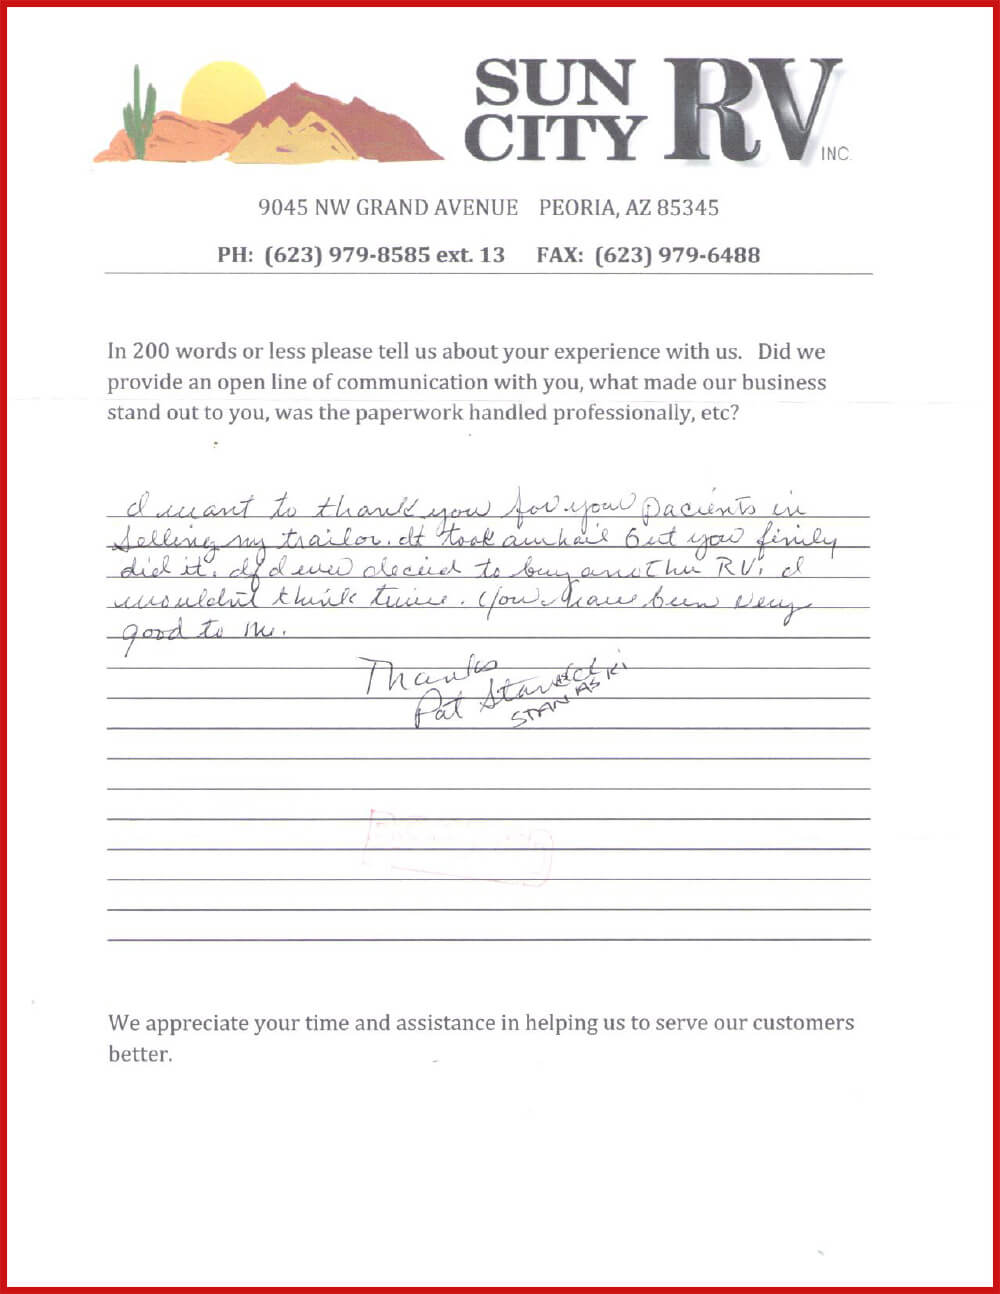 SUN
CITY RV INC.
9045 NW GRAND AVENUE PEORIA, AZ 85345
PH: (623) 979-8585 ext. 13 FAX: (623) 979-6488
In 200 words or less please tell us about your experience with us. Did we
provide an open line of communication with you, what made our business
stand out to you, was the paperwork handled professionally, etc?
I want to thank you for your pacients in
selling my trailor. It took awhail but you finily
did it. If I ever decied to buy another RV. I
wouldn't think twice. You have been very
good to me.
Thanks
Pat
STANASKI
We appreciate your time and assistance in helping us to serve our customers
better.